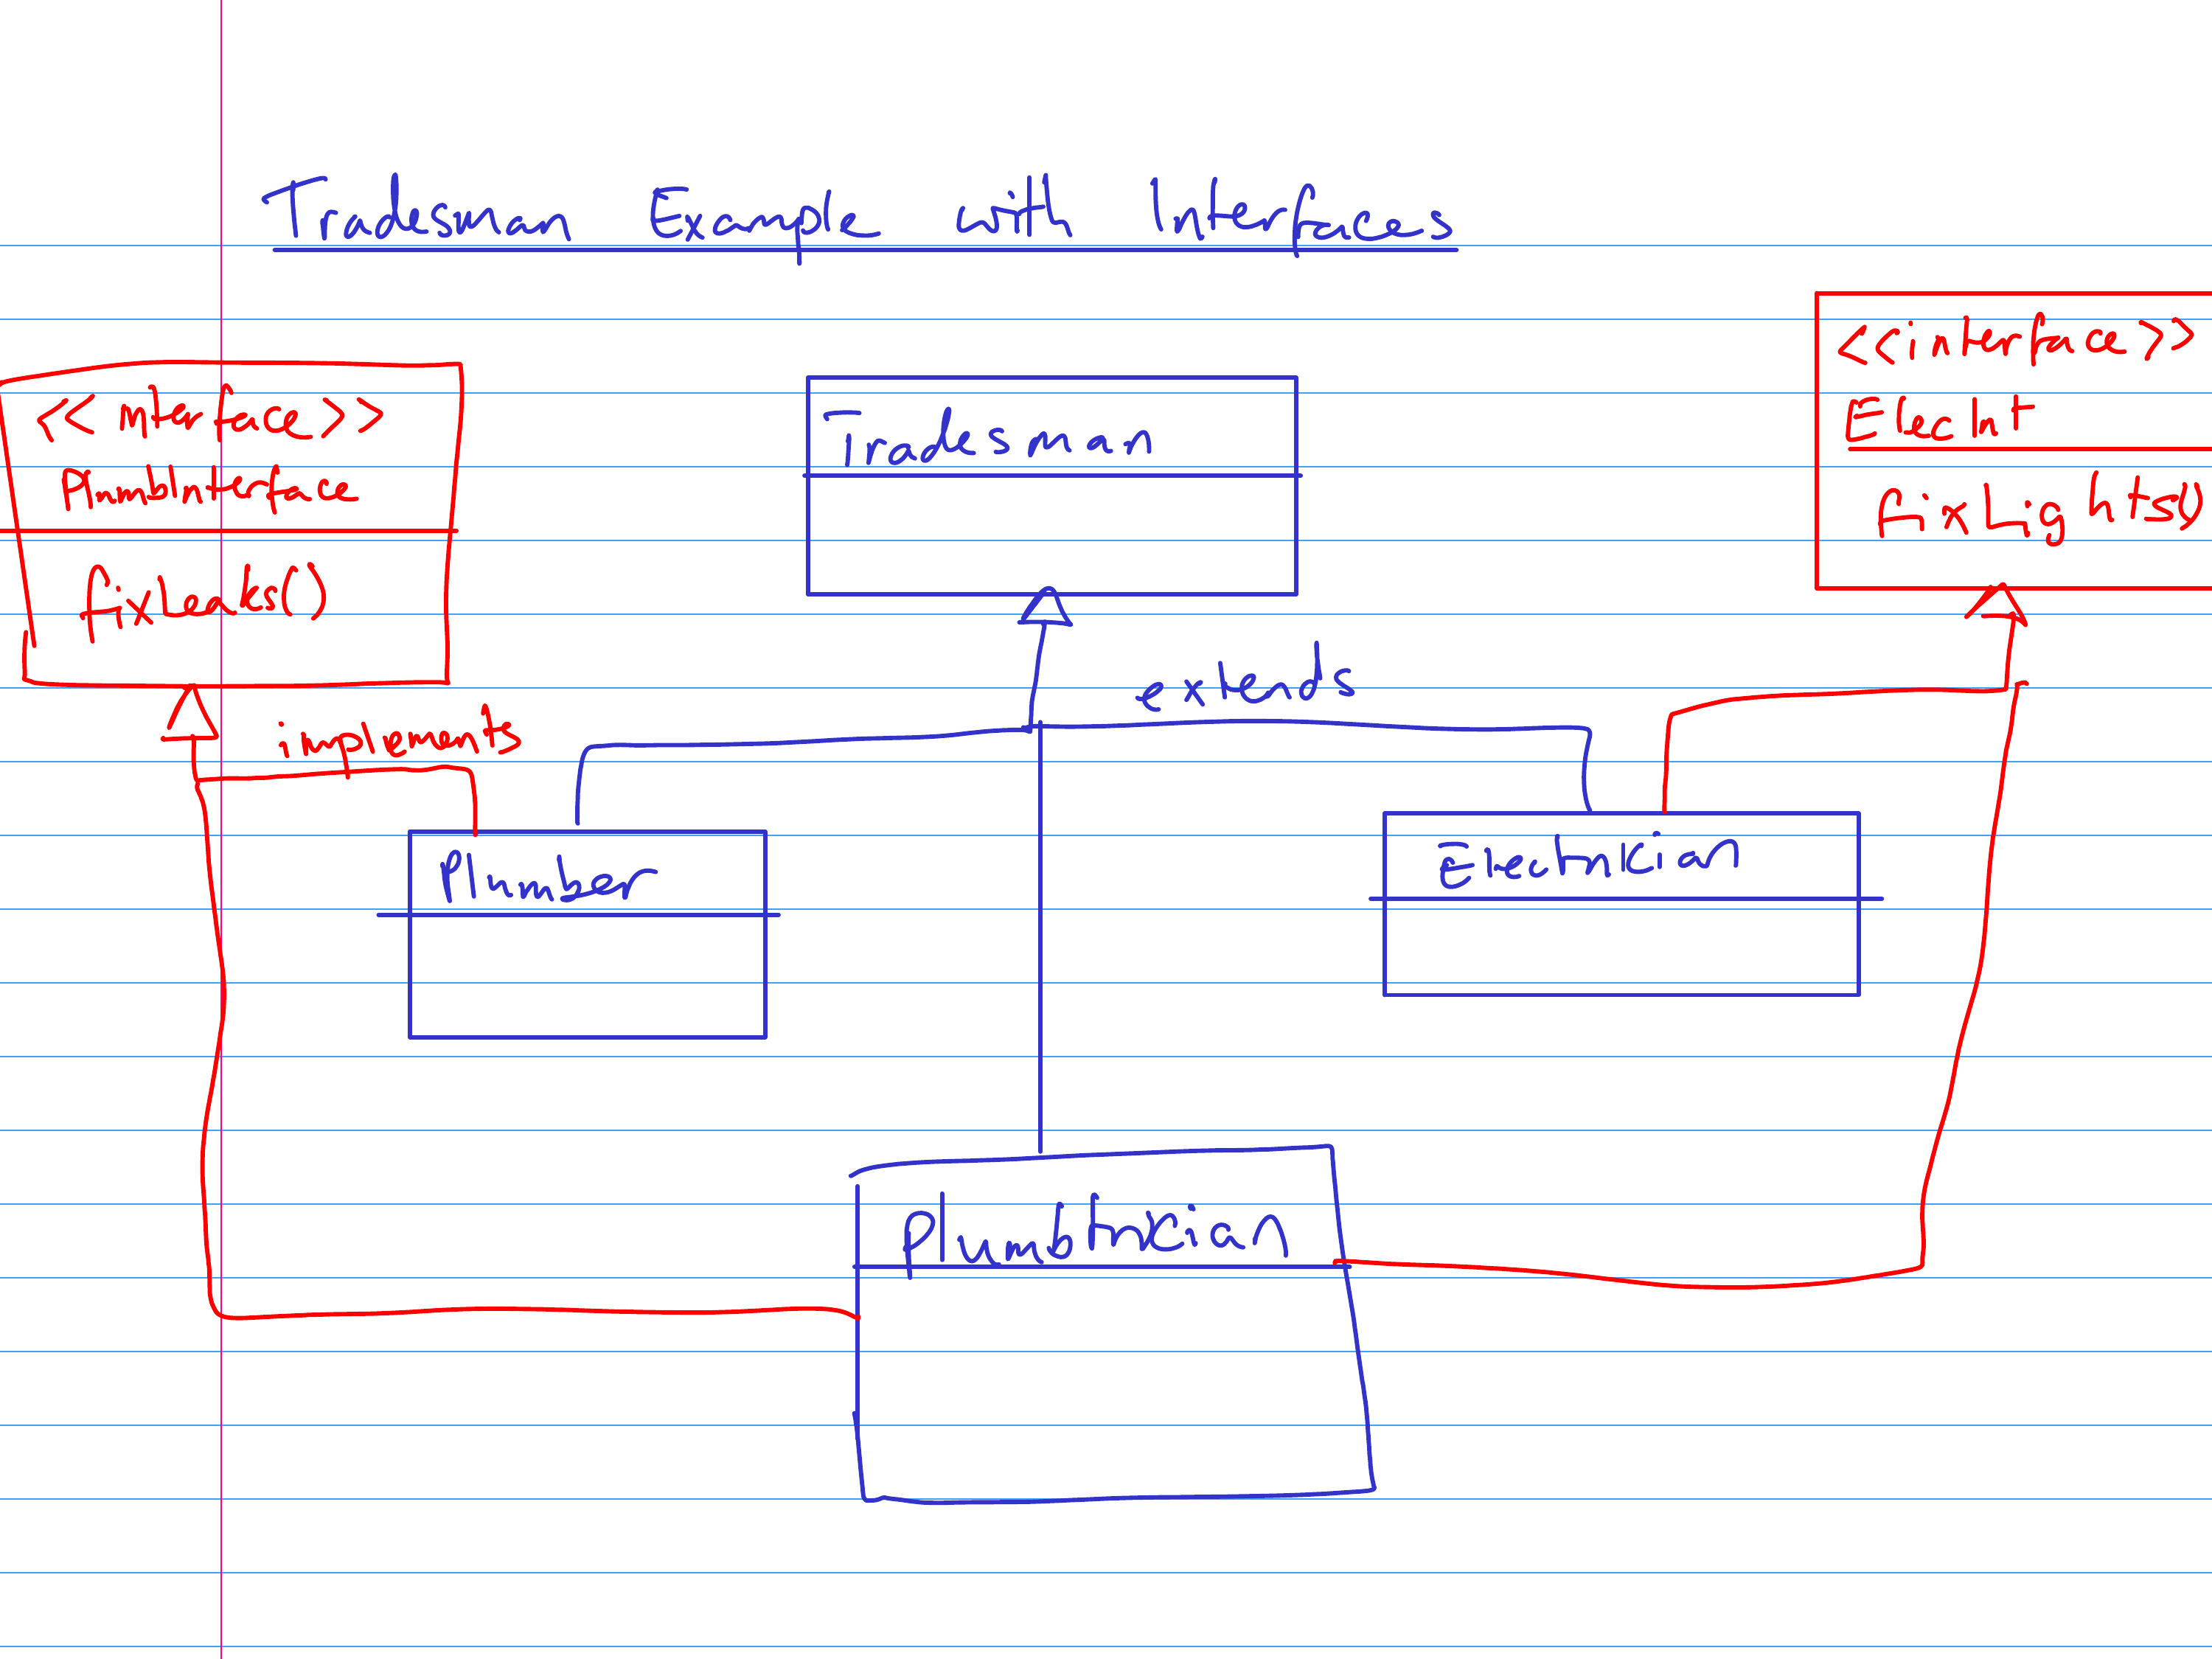 Tradesman Example with Interfaces
<<interface>>
PlumbInterface
fixLeaks()
Tradesman
<<interface>>
ElecInt
fixLights()
implements
extends
Plumber
Electrician
Plumbtrician